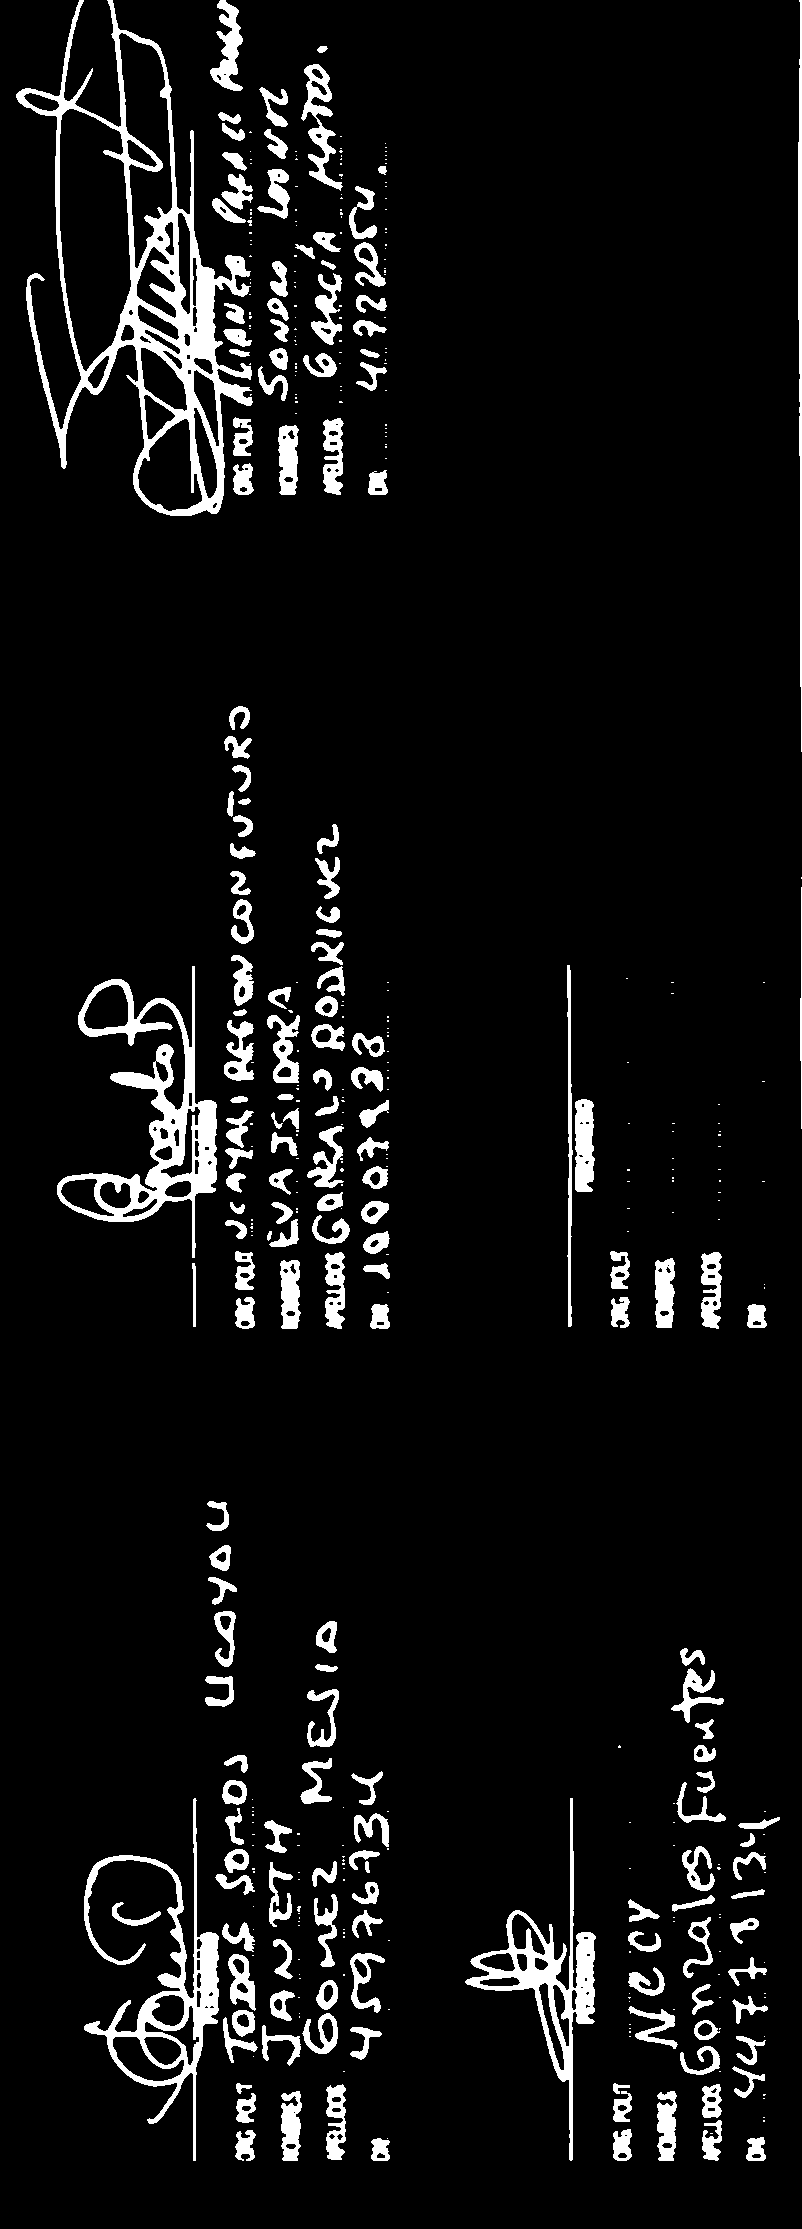 PERSONERO
ORG. POLIT TODOS SOMOS UCAYALI
NOMBRES JANETH
APELLIDOS GOMEZ MESIA
DNI 45976734
PERSONERO
ORG. POLIT UCAYALI REGION CON FUTURO
NOMBRES EVA ISIDORA
APELLIDOS GONZALO RODRIGUEZ
DNI
ORG. POLIT ALIANZA PARA EL
NOMBRES
APELLIDOS GARCÍA MATEO.
DNI 41722054.
PERSONERO
ORG. POLIT
NOMBRES
APELLIDOS Gonzales Fuentes
DNI 44778134
PERSONERO
ORG. POLIT
NOMBRES
APELLIDOS
DNI